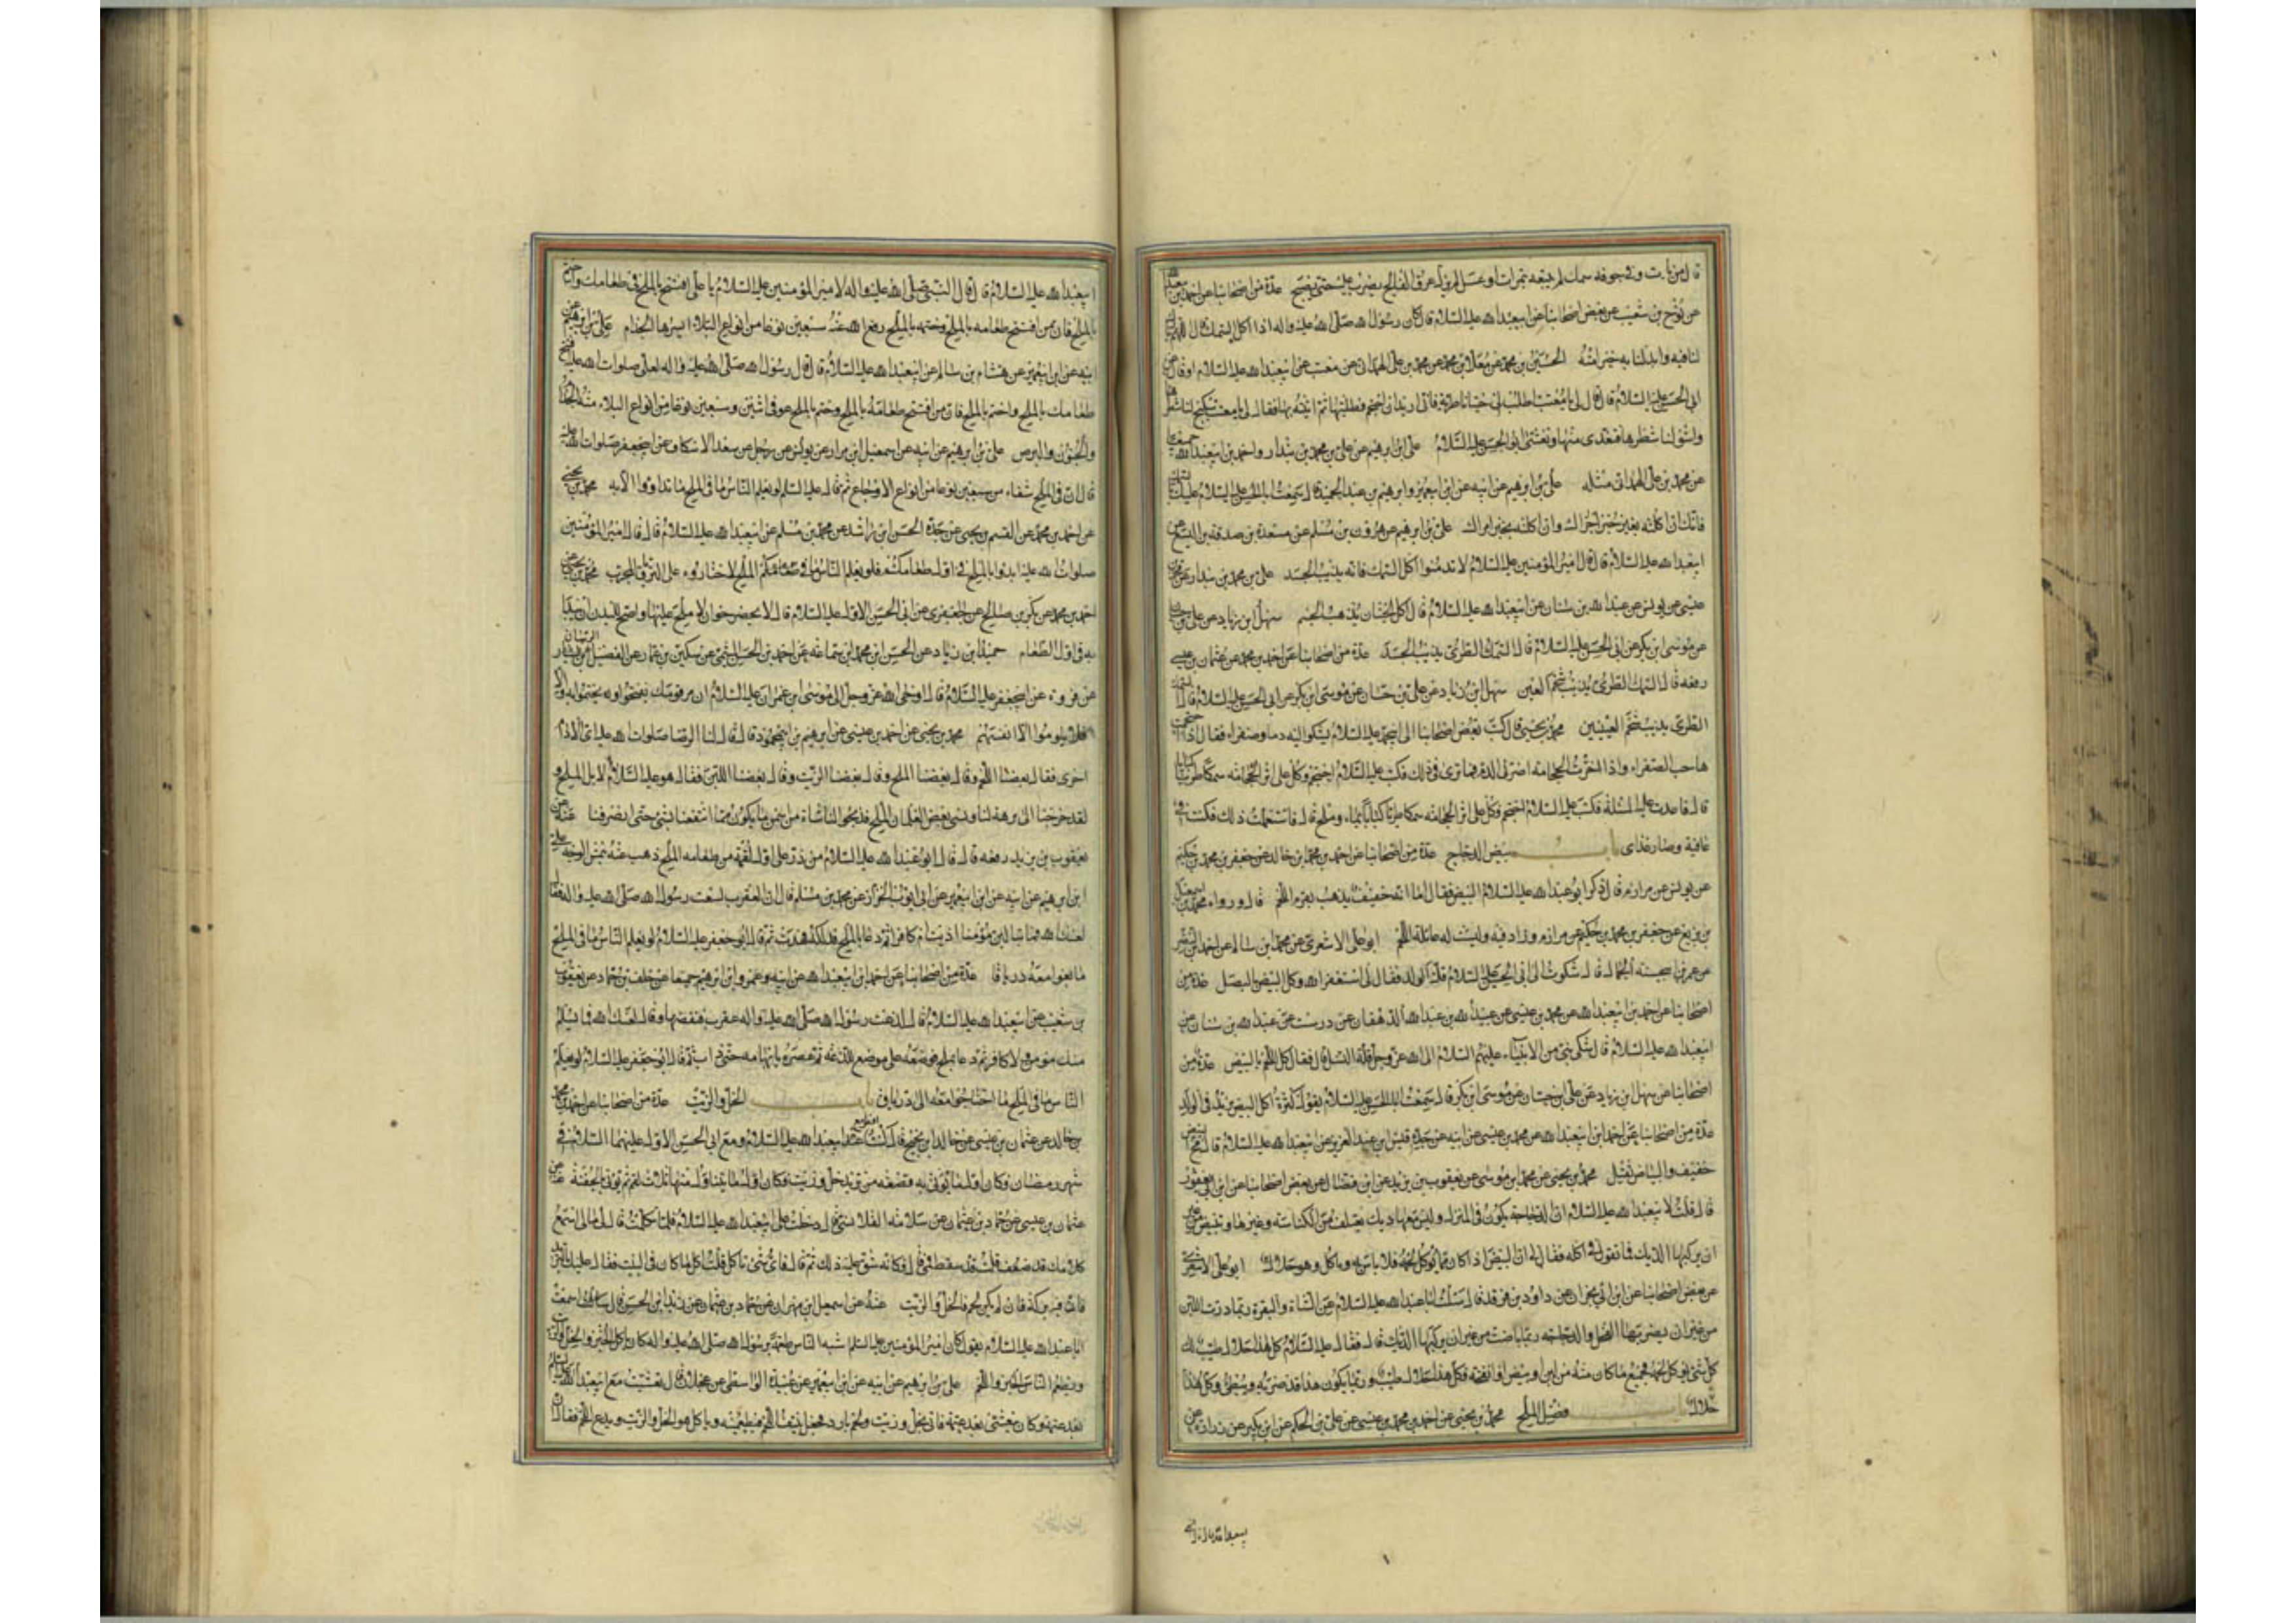 قال من بات وفي جوفه سمك لم يتبعه بتمرات او عسل لم يزل عرق الفالج يضرب عليه حتى يصبح عدة من اصحابنا عن احمد بن
عن نوح بن شعيب عن بعض اصحابنا عن ابيعبدالله عليه السلام قال كان رسول الله صلى الله عليه واله اذا اكل السمك قال اللهم بارك
لنا فيه وابدلنا به خيرا منه الحسين بن محمد عن معلا بن محمد عن محمد بن على الهمدانى عن معتب عن ابيعبدالله عليه السلام او قال عن
ابى الحسن عليه السلام قال قال لى يا معتب اطلب لى حيتانا طرية فانى اريد ان احتجم فطلبتها ثم اتيته بها فقال لى يا معتب سكبج لنا شطرها
واشو لنا شطرها فتغدى منها وتعشى ابو الحسن عليه السلام على ابن ابرهيم عن على بن محمد بن بندار واحمد بن ابيعبدالله جميعا
عن محمد بن على الهمدانى مثله على بن ابرهيم عن ابيه عن ابن ابيعمير وابرهيم بن عبد الحميد قال سمعت ابا الحسن عليه السلام عليك بالسمك
فانك ان اكلته بغير خبز اجزاك وان اكلته بخبز امراك على بن ابرهيم عن هرون بن مسلم عن مسعدة بن صدقة بن اليسع عن
ابيعبدالله عليه السلام قال قال امير المؤمنين عليه السلام لا تدمنوا اكل السمك فانه يذيب الجسد على بن محمد بن بندار عن محمد بن
عيسى عن يونس عن عبدالله بن سنان عن ابيعبدالله عليه السلام قال اكل الحيتان يذهب الجسم سهل ابن زياد عن على بن حسان
عن موسى ابن بكر عن ابى الحسن عليه السلام قال السمك الطرى يذيب الجسد عدة من اصحابنا عن احمد بن محمد عن عثمان بن عيسى
رفعه قال السمك الطرى يذيب شحم العين سهل ابن زياد عن على بن حسان عن موسى ابن بكر عن ابى الحسن عليه السلام قال السمك
الطرى يذيب شحم العينين محمد بن يحيى قال كتب بعض اصحابنا الى ابيمحمد عليه السلام يشكو اليه دما وصفراء فقال اذا احتجمت
هاجت الصفراء واذا اخرت الحجامة اضر بى الدم فما ترى فى ذلك فكتب عليه السلام احتجم وكل على اثر الحجامة سمكا طريا كبابا
قال فاعدت عليه المسئلة فكتب عليه السلام احتجم وكل على اثر الحجامة سمكا طريا كبابا بماء وملح قال فاستعملت ذلك فكنت فى
عافية وصار غذاى باب بيض الدجاج عدة من اصحابنا عن احمد بن محمد ابن خالد عن جعفر بن محمد بن حكيم
عن يونس عن مرازم قال ذكر ابو عبدالله عليه السلام البيض فقال اما انه خفيف يذهب بقرم اللحم قال ورواه محمد بن اسمعيل
بن بزيع عن جعفر بن محمد بن حكيم عن مرازم وزاد فيه وليست له غائلة اللحم ابو على الاشعرى عن محمد ابن سالم عن احمد بن النضر
عن عمر بن ابى حسنة الجمال قال شكوت الى ابى الحسن عليه السلام قلة الولد فقال لى استغفر الله وكل البيض بالبصل عدة من
اصحابنا عن احمد بن ابيعبدالله عن محمد بن عيسى عن عبيد الله بن عبدالله الدهقان عن درست عن عبدالله بن سنان عن
ابيعبدالله عليه السلام قال شكى نبى من الانبياء عليهم السلام الى الله عز وجل قلة النسل فقال كل اللحم بالبيض عدة من
اصحابنا عن سهل بن زياد عن على ابن حسان عن موسى ابن بكر قال سمعت ابا الحسن عليه السلام يقول كثرة اكل البيض يزيد فى الولد
عدة من اصحابنا عن احمد ابن ابيعبدالله عن محمد بن عيسى عن ابيه عن جده قيس ابن عبد العزيز عن ابيعبدالله عليه السلام قال مح البيض
خفيف والبياض ثقيل محمد بن يحيى عن محمد ابن موسى عن يعقوب بن يزيد عن ابن فضال عن بعض اصحابنا عن ابن ابى يعفور
قال قلت لابيعبدالله عليه السلام ان الدجاجة يكون فى المنزل وليس معها ديك يعتلف من الكناسة وغيرها وتبيض من غير
ان يركبها الديك فما تقول فى اكله فقال لى ان البيض اذا كان مما يؤكل لحمه فلا باس به وباكله وهو حلال ابو على الاشعرى
عن بعض اصحابنا عن ابن ابى نجران عن داود بن فرقد قال سئلت ابا عبدالله عليه السلام عن الشاة والبقرة ربما درت اللبن
من غير ان يضربها الفحل والدجاجة ربما باضت من غير ان يركبها الديك قال فقال عليه السلام كل هذا حلال طيب لك
كل شئ يؤكل لحمه فجميع ما كان منه من لبن او بيض او انفحة فكل هذا حلال طيب وربما يكون هذا قد ضربه ويبطئ وكل هذا
حلال فضل الملح محمد بن يحيى عن احمد بن محمد بن عيسى عن على بن الحكم عن ابن بكير عن زرارة عن
ابيعبدالله عليه السلام قال قال النبى صلى الله عليه واله لامير المؤمنين عليه السلام يا على افتتح بالملح فى طعامك واختم
بالملح فان من افتتح طعامه بالملح وختمه بالملح رفع الله عنه سبعين نوعا من انواع البلاء ايسرها الجذام على بن ابرهيم عن
ابيه عن ابن ابيعمير عن هشام بن سالم عن ابيعبدالله عليه السلام قال قال رسول الله صلى الله عليه واله لعلى صلوات الله عليه افتتح
طعامك بالملح واختم بالملح فان من افتتح طعامه بالملح وختم بالملح عوفى اثنين وسبعين نوعا من انواع البلاء منه الجذام
والجنون والبرص على بن ابرهيم عن ابيه عن اسمعيل ابن مرار عن يونس عن رجل عن سعد الاسكاف عن ابيجعفر صلوات الله عليه
قال ان فى الملح شفاء من سبعين نوعا من انواع الاوجاع ثم قال عليه السلم لو يعلم الناس ما فى الملح ما تداووا الا به محمد بن يحيى
عن احمد بن محمد عن القسم بن يحيى عن جده الحسن ابن راشد عن محمد بن مسلم عن ابيعبدالله عليه السلام قال قال امير المؤمنين
صلوات الله عليه ابدوا بالملح فى اول طعامكم فلو يعلم الناس ما فى الملح لاختاروه على الترياق المجرب محمد بن يحيى عن
احمد بن محمد عن بكر بن صالح عن الجعفرى عن ابى الحسن الاول عليه السلام قال لا يحضر خوان لا ملح عليها واصح للبدن ان يبدا
به فى اول الطعام حميد ابن زياد عن الحسن ابن محمد ابن سماعة عن احمد بن الحسن الميثمى عن سكين بن عمار عن الفضيل الرسان
عن فروة عن ابيجعفر عليه السلام قال اوحى الله عز وجل الى موسى ابن عمران عليه السلام ان مر قومك يفتتحوا به يختتموا به والا
فلا يلوموا الا انفسهم محمد بن يحيى عن احمد بن عيسى عن ابرهيم بن ابيمحمود قال قال لنا الرضا صلوات الله عليه اى الادام
اخرى فقال بعضنا اللحم وقال بعضنا الملح وقال بعضنا الزيت وقال بعضنا اللبن فقال هو عليه السلام لا بل الملح و
لقد خرجنا الى نزهة لنا ونسى بعض الغلمان الملح فذبحوا لنا شاة من اسمن ما يكون فما انتفعنا بشئ حتى انصرفنا عنه عن
يعقوب بن يزيد رفعه قال قال ابو عبدالله عليه السلام من ذر على اول لقمة من طعامه الملح ذهب عنه بنمش الوجه على
ابن ابرهيم عن ابيه عن ابن ابيعمير عن ابى ايوب الخزاز عن محمد بن مسلم قال ان العقرب لسعت رسول الله صلى الله عليه واله فقال
لعنك الله فما تبالين مؤمنا اذيت ام كافرا ثم دعا بالملح فدلكه فهدت ثم قال ابو جعفر عليه السلام لو يعلم الناس ما فى الملح
ما بغوا معه درياقا عدة من اصحابنا عن احمد ابن ابيعبدالله عن ابيه وعمرو ابن ابرهيم جميعا عن خلف بن حماد عن يعقوب
بن شعيب عن ابيعبدالله عليه السلام قال لدغت رسول الله صلى الله عليه واله عقرب فنفضها وقال لعنك الله فما يسلم
منك مومن ولا كافر ثم دعا بملح فوضعه على موضع اللدغة ثم عصره بابهامه حتى ذاب ثم قال ابو جعفر عليه السلام لو يعلم
الناس ما فى الملح ما احتاجوا معه الى درياق باب الخل والزيت عدة من اصحابنا عن احمد بن محمد
بن خالد عن عثمان بن عيسى عن خالد ابن نجيح قال كنت افطر مع ابيعبدالله عليه السلام ومع ابى الحسن الاول عليهما السلام فى
شهر رمضان وكان اول ما يؤتى به قصعة من ثريد خل وزيت فكان اول ما يتناول منها ثلاث لقم ثم يؤتى بالجفنة عنه عن
عثمان بن عيسى عن حماد بن عثمان عن سلامة القلانسى قال دخلت على ابيعبدالله عليه السلام فلما تكلمت قال لى مالى اسمع
كلامك قد ضعف قلت قد سقط فمى قال فكانه شق عليه ذلك ثم قال فاى شئ تاكل قلت اكل ما كان فى البيت فقال عليك بالثريد
فان فيه بركة فان لم يكن لحم فالخل والزيت عنه عن اسمعيل ابن مهران عن حماد بن عثمان عن زيد ابن الحسن قال سمعت
ابا عبدالله عليه السلام يقول كان امير المؤمنين عليه السلم اشبه الناس طعمة برسول الله صلى الله عليه واله كان ياكل الخبز والخل والزيت
ويطعم الناس الخبز واللحم على بن ابرهيم عن ابيه عن ابن ابيعمير عن عبيدة الواسطى عن عجلان قال تعشيت مع ابيعبدالله عليه السلام
بعد عتمة وكان يتعشى بعد عتمة فاتى بخل وزيت ولحم بارد فجعل ينتف اللحم فيطعمنيه وياكل هو الخل والزيت ويدع اللحم فقال ان